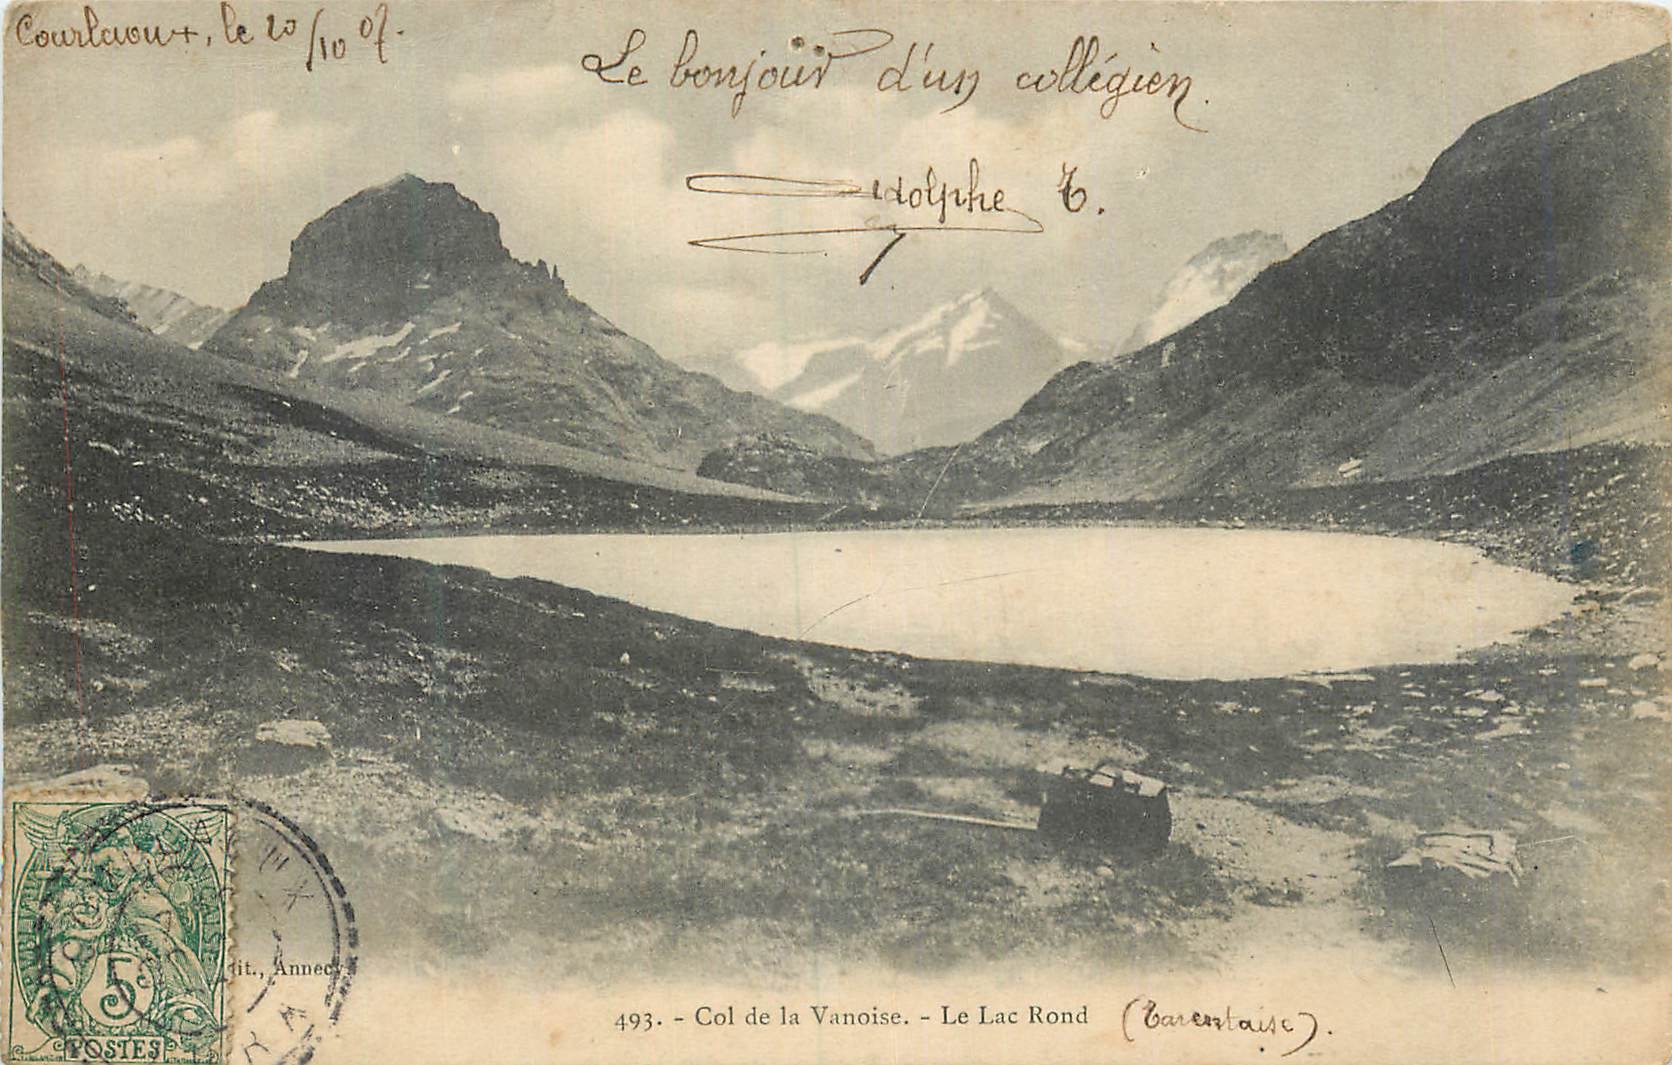 Courlaoux, le 20/10 07.
Le bonjour d'un collégien.
Adolphe T.
RÉPUBLIQUE FRANÇAISE
5
POSTES
dit., Annecy
493. - Col de la Vanoise. - Le Lac Rond (Tarentaise).